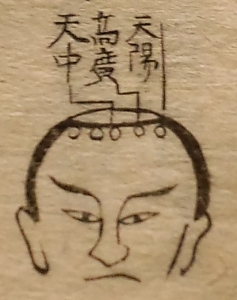 天陽
高廣
天中